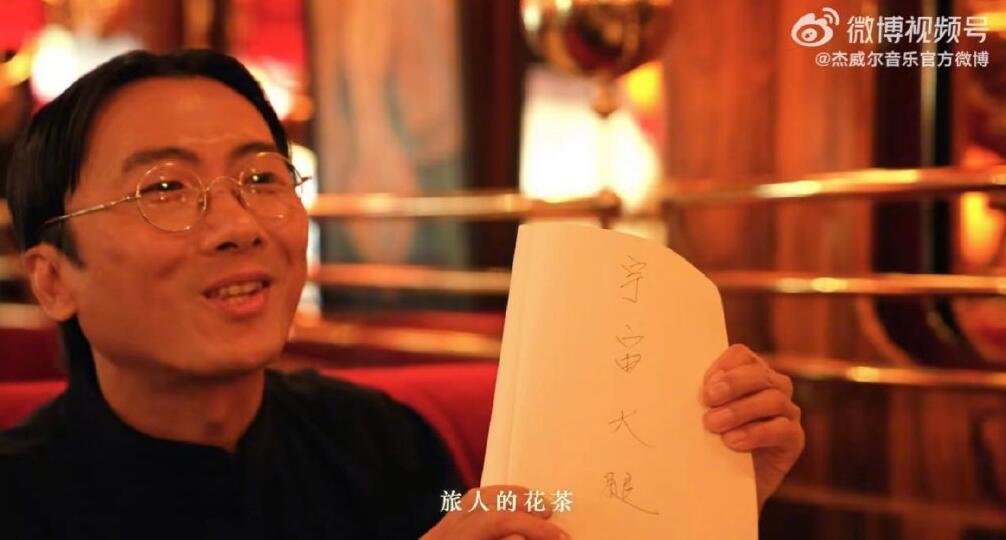 微博视频号
@杰威尔音乐官方微博
宇宙大腿
旅人的花茶